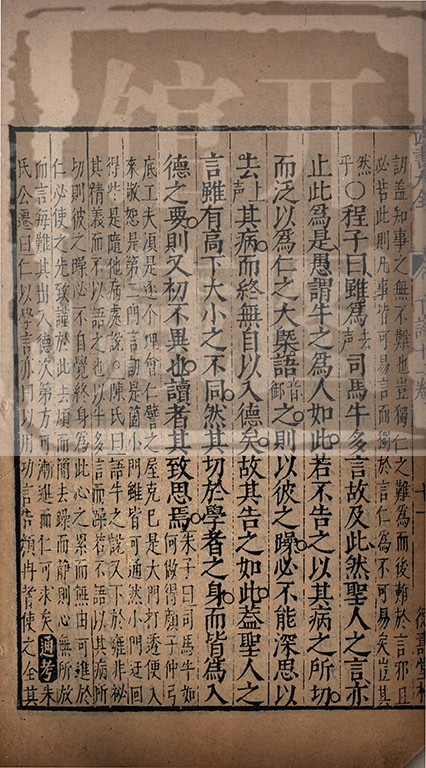 訒蓋知事之無不難也豈獨仁之難為而後難於言邪且
必若此則凡事皆可易言而獨於言仁為不可易矣豈其
然乎○程子曰雖為去聲司馬牛多言故及此然聖人之言亦
止此為是愚謂牛之為人如此若不告之以其病之所切
而泛以為仁之大槩語音御之則以彼之躁必不能深思以
去上聲其病而終無自以入德矣故其告之如此蓋聖人之
言雖有高下大小之不同然其切於學者之身而皆為入
德之要則又初不異也讀者其致思焉朱子曰司馬牛如
何做得顔子仲弓
底工夫須是逐个理會仁譬之屋克己是大門打透便入
來敬恕是第二門言訒是箇小門雖皆可通然小門迂回
得些是隨他病處說陳氏曰語牛之說又下於雍非祕
其精義而不以語之也以牛多言而躁若不語以其病所
切則彼之躁必不自覺終身為此心之累而無由可進於
仁必使之先致謹於此去煩而簡去躁而靜則心無所放
而言每難其出入德次第方可漸進而仁可求矣通考朱
氏公遷曰仁以學言亦曰以用功言告顔冉者使之全其